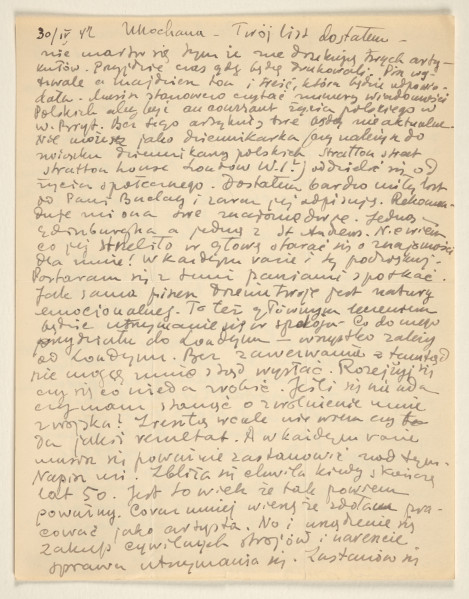 30/IV 42 Ukochana - Twój list dostałem -
nie martw się tym że nie drukują twych arty-
kułów. Przyjdzie czas gdy będą drukowali. Pisz wy-
trwale a znajdziesz ton i treść, która będzie odpowia-
dała. Musisz stanowczo czytać numery wiadomości
Polskich aby być au courant życia polskiego w
w. Bryt. Bez tego artykuły twe będą nieaktualne.
Nie możesz jako dziennikarka przynależna do
związku dziennikarzy polskich Stratton strat
stratton house London W.1.) oddzielić się od
życia społecznego. Dostałem bardzo miły list
od Pani i zaraz jej odpisuję. Rekomen-
duje mi ona dwie znajome swoje. Jedną z
Edinburgha a jedną z St Andrews. Nie wiem
co jej strzeliło w głowę starać się o znajomości
dla mnie! W każdym razie i tę podróż.
Postaram się z temi paniami spotkać.
Jak sama piszesz życie twoje jest natury
emocjonalnej. To też głównym
będzie utrzymanie się w spokoju. Co do mego
przyjazdu do Londynu - wszystko zależy
od Londynu. Bez zawezwania z tamtąd
nie mogą mnie stąd wysłać. Rozejrzyj się
czy się co nie da zrobić. Jeśli się nie uda
czy mam starać o zwolnienie mnie
z wojska? Zresztą wcale nie wiem czy to
da jakiś rezultat. A w każdym razie
musisz się poważnie zastanowić nad tym.
Napisz mi. Zbliża się chwila kiedy skończę
lat 50. Jest to wiek że tak powiem
poważny. Coraz mniej wierzę że zdołam pra-
cować jako artysta. No i urządzenie się
zakup cywilnych strojów i nareszcie
sprawa utrzymania się. Zastanów się